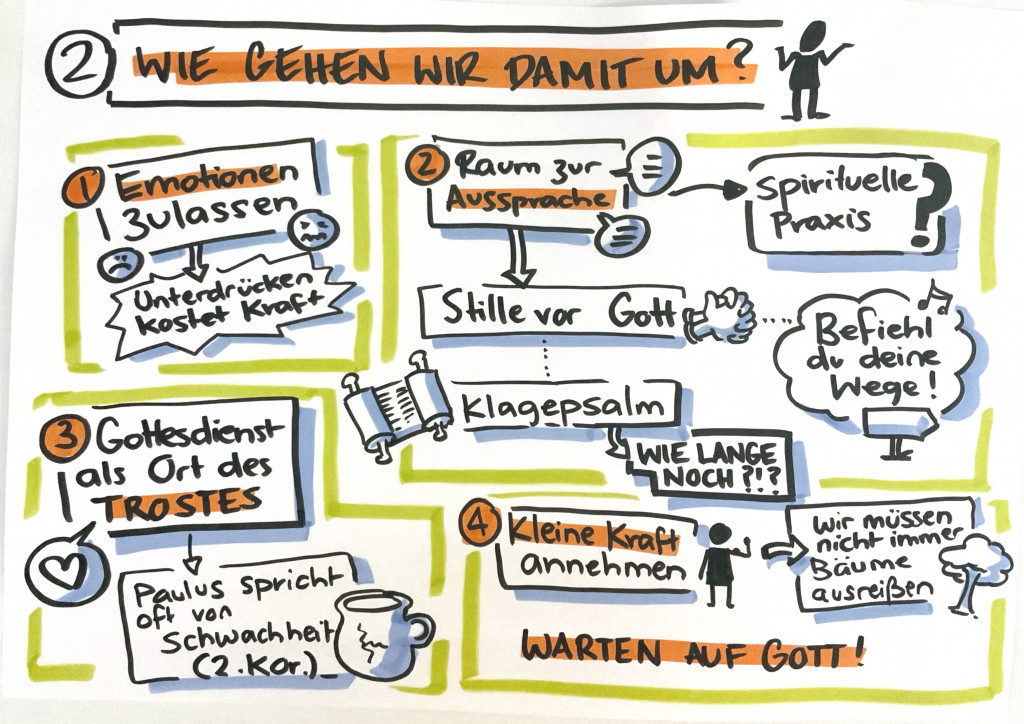 2 WIE GEHEN WIR DAMIT UM?
1 Emotionen
zulassen
Unterdrücken
kostet Kraft
2 Raum zur
Aussprache
Spirituelle
Praxis ?
Stille vor Gott
Befiehl
du deine
Wege!
Klagepsalm
WIE LANGE
NOCH ?!?
3 Gottesdienst
als Ort des
TROSTES
Paulus spricht
oft von
Schwachheit
(2. Kor.)
4 Kleine Kraft
annehmen
Wir müssen
nicht immer
Bäume
ausreißen
WARTEN AUF GOTT!